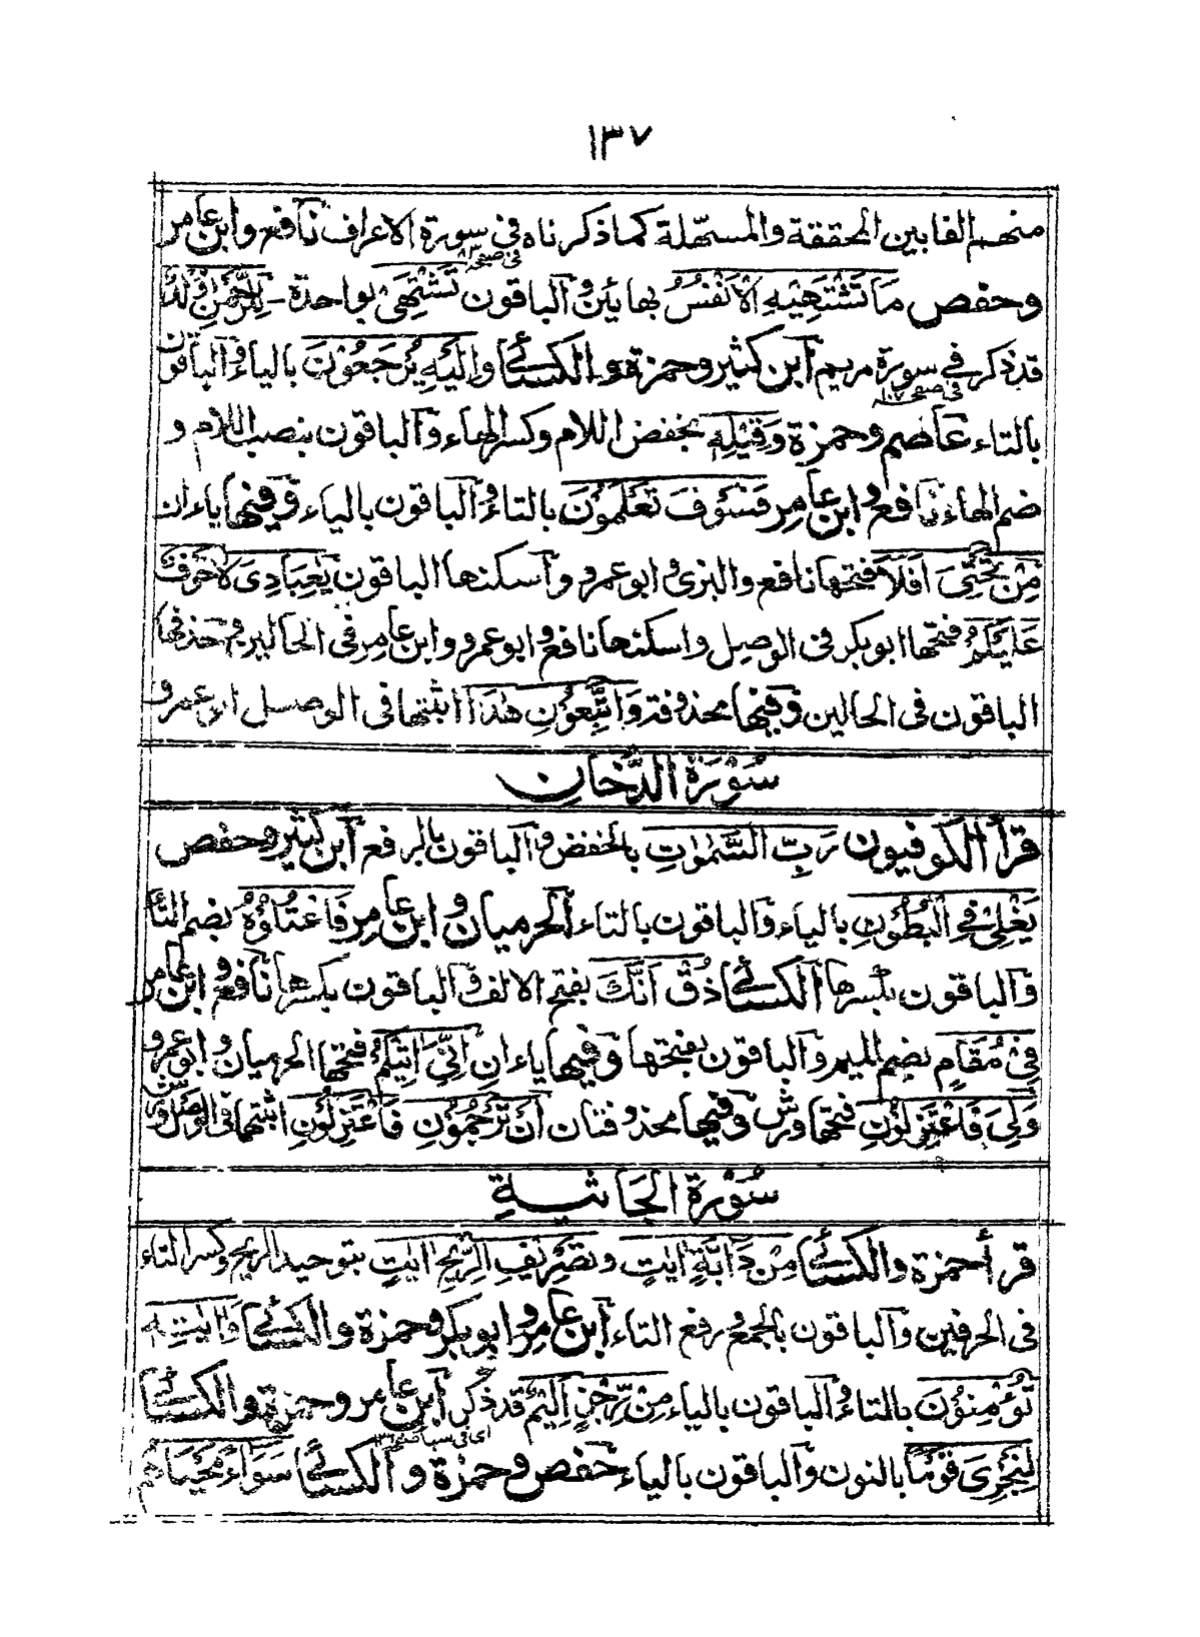 ١٣٧
منهم الفا بين المحققة والمسهلة كما ذكرناه في سورة الاعراف نافع وابن عامر
في صفحه
وحفص مَا تَشْتَهِيْهِ الْاَنْفُسُ بهائين والباقون تَشْتَهِىْ بواحدة ـ لِلرَّحْمٰنِ وَلَدٌ
قد ذكر في سورة مريم ابن كثير وحمزة والكسائي وَاِلَيْهِ يُرْجَعُوْنَ بالياء والباقون
في صفحه ١٠٧
بالتاء عاصم وحمزة وَقِيْلِهٖ بخفض اللام وكسر الهاء والباقون بنصب اللام و
ضم الهاء نافع وابن عامر فَسَوْفَ تَعْلَمُوْنَ بالتاء والباقون بالياء وفيها ياءان
مِنْ تَحْتِىْٓ اَفَلَا فتحها نافع والبزى وابو عمرو واسكنها الباقون يٰعِبَادِىَ لَاخَوْفٌ
عَلَيْكُمُ فتحها ابو بكر فى الوصل واسكنها نافع وابو عمرو وابن عامر فى الحالين وحذفها
الباقون فى الحالين وفيها محذوفة وَاتَّبِعُوْنِ هٰذَا اثبتها فى الوصل ابو عمرو
سُوْرَةُ الدُّخَانِ
قرأ الكوفيون رَبِّ السَّمٰوٰتِ بالخفض والباقون بالرفع ابن كثير وحفص
يَغْلِىْ فِى الْبُطُوْنِ بالياء والباقون بالتاء الحرميان وابن عامر فَاعْتُلُوْهُ بضم التاء
والباقون بكسرها الكسائي ذُقْ اَنَّكَ بفتح الالف والباقون بكسرها نافع وابن عامر
فِىْ مُقَامٍ بضم الميم والباقون بفتحها وفيها ياءان اِنِّىْٓ اٰتِيْكُمْ فتحها الحرميان وابو عمرو
وَلِىَ فَاعْتَزِلُوْنِ فتحها ورش وفيها محذوفتان اَنْ تَرْجُمُوْنِ فَاعْتَزِلُوْنِ اثبتهما فى الوصل ورش
سُوْرَةُ الْجَاثِيَةِ
قرأ حمزة والكسائي مِنْ دَآبَّةٍ اٰيٰتٍ وتَصْرِيْفِ الرِّيْحِ اٰيٰتٍ بتوحيد الريح وكسر التاء
فى الحرفين والباقون بالجمع ورفع التاء ابن عامر وابو بكر وحمزة والكسائي وَاٰيٰتِهٖ
تُؤْمِنُوْنَ بالتاء والباقون بالياء مِنْ رِّجْزٍ اَلِيْمٌ قد ذكر ابن عامر وحمزة والكسائي
اى فى سبا
لِنَجْزِىَ قَوْمًا بالنون والباقون بالياء حفص وحمزة والكسائي سَوَآءً مَّحْيَاهُمْ